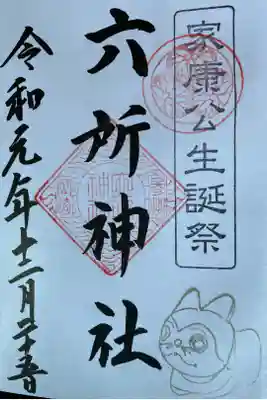 家康公生誕祭
六所神社
令和元年十二月二十五日